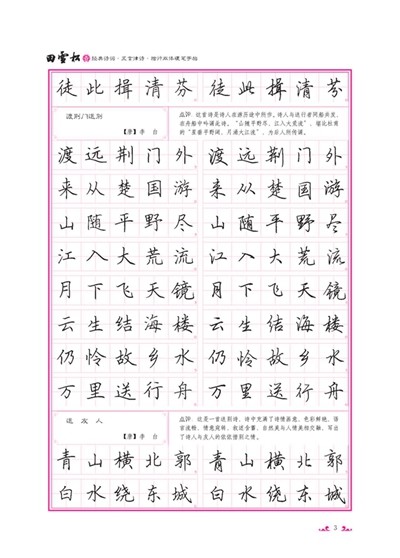 田雪松 经典诗词·五言律诗·楷行双体硬笔字帖
徒此揖清芬 徒此揖清芬
渡荆门送别
【唐】李 白
点评：这首诗是诗人在游历途中所作。诗人与送行者同船共发，
在舟船中吟诵此诗。“山随平野尽，江入大荒流”，堪比杜甫
的“星垂平野阔，月涌大江流”，为后人所传诵。
渡远荆门外 渡远荆门外
来从楚国游 来从楚国游
山随平野尽 山随平野尽
江入大荒流 江入大荒流
月下飞天镜 月下飞天镜
云生结海楼 云生结海楼
仍怜故乡水 仍怜故乡水
万里送行舟 万里送行舟
送友人
【唐】李 白
点评：这是一首送别诗，诗中充满了诗情画意，色彩鲜艳，语
言流畅，情意宛转，叙述含蓄，自然美与人情美相交融，写出
了诗人与友人的依依惜别之情。
青山横北郭 青山横北郭
白水绕东城 白水绕东城
3